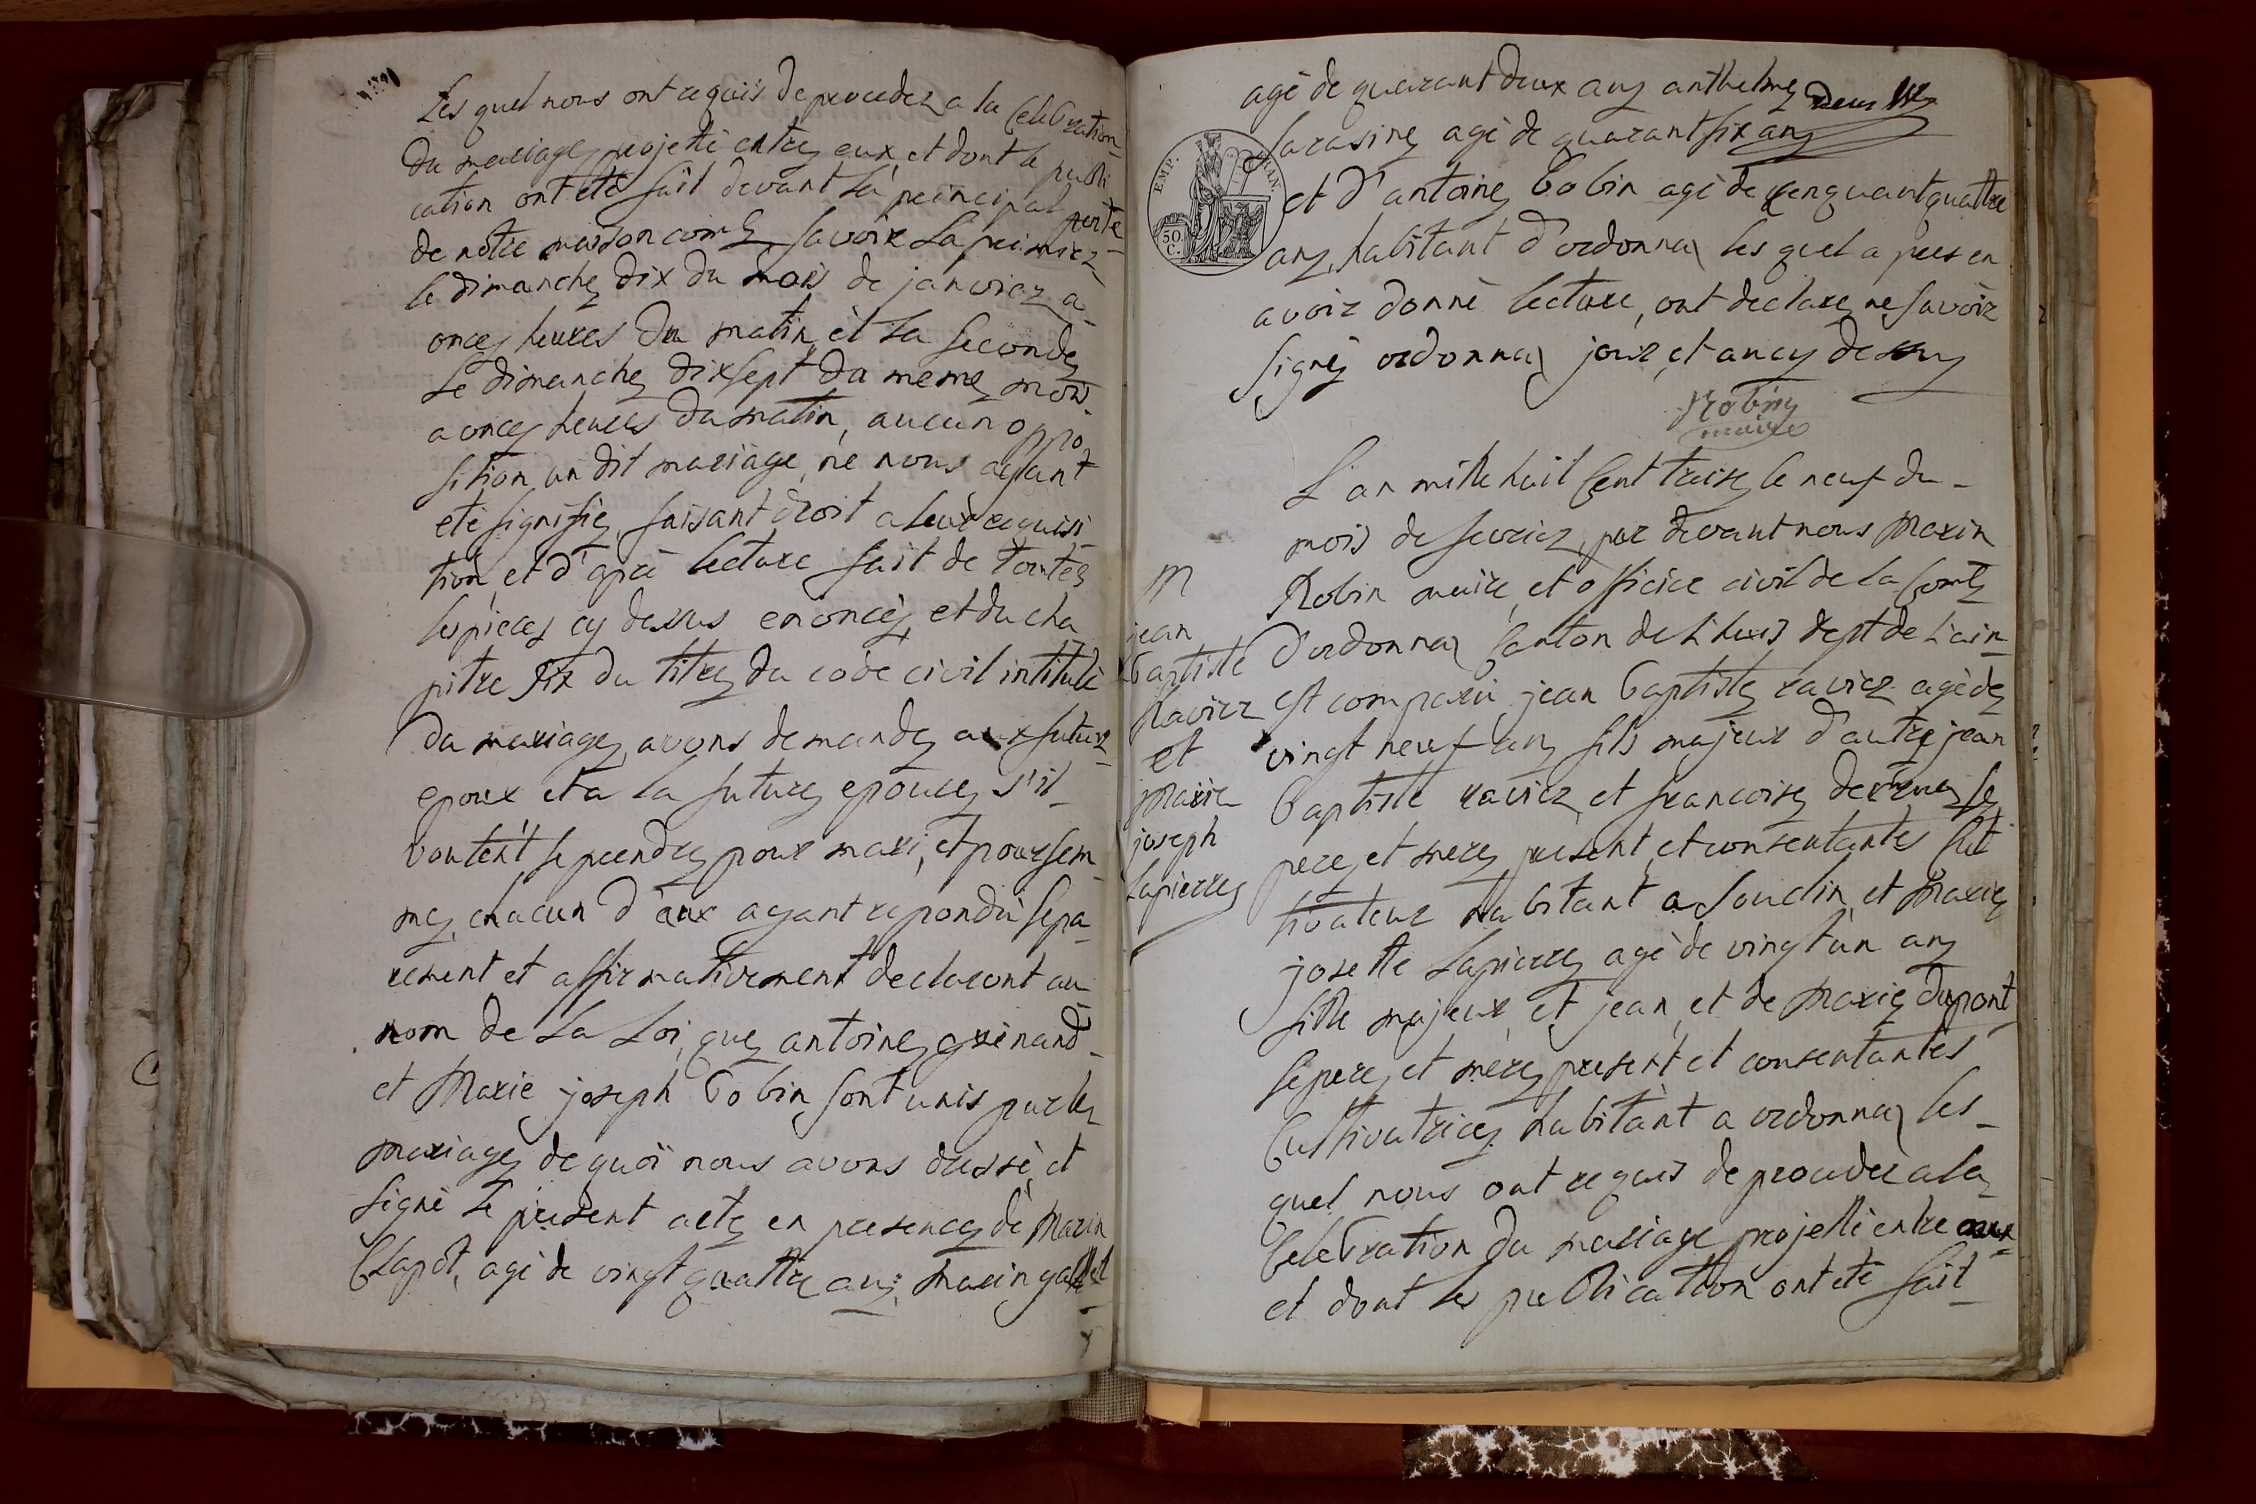 Les quel nous ont requis de proceder a la Celebration
du mariage projetté entre eux, et dont la publi
cation ont eté fait devant la principal porte
de nôtre maison comle, savoir la premier
le dimanche dix du mois de janvier a
onces heures du matin, et la seconde
Le dimanche dixsept du meme mois
a onces heures du matin, aucun oppo
sition au dit mariage ne nous ayant
eté signifié, faisant droit a leur requisi
tion, et d'apré lecture fait de toutes
les pieces cy dessus enoncés, et du cha
pitre six du titre du code civil intitulé
du mariage, avons demandé aux futur
epoux et a la future epouce, s'il
voutent se prendre pour mari, et pour fem
me, chacun d'eux ayant repondu sepa
rement et affirmativement declaront au
nom de la Loi, que antoine grinand
et Marie joseph Bobin sont unis par le
mariage, de quoi nous avons dressé, et
signé Le present acte en presence de Marin
Clapot, agé de vingt quattre ans, marin gallet
agé de quarant deux ans anthelme
Sarasine agé de quarant six ans
EMP. FRAN.
50. C.
et d'antoine Bobin agé de cenquant quattre
ans, habitant d'ordonnaz les quel a pres en
avoir donné lecture, ont declare ne savoir
signé ordonnaz jour, et an cy dessus
Robin
maire
L'an mille huit Cent treise le neuf du
mois de fevrier, par devant nous Marin
Robin maire, et officier civil de la Comle
D'ordonnaz Canton de Lhuis dept de L'ain
est comparu, jean Baptiste ravier agé de
vingt neuf ans fils majeur d'autre jean
Baptiste ravier, et francoise se
pere, et mere, present, et consentantes Cul
tivateur habitant a Soudin, et Marie
josette Lapierre, agé de vingt un ans
fille majeur, et jean, et de Marie dupont
se pere, et mere, present, et consentantes
Cultivatrices habitant a ordonnaz les
quel nous ont requis de proceder a la
Celebration du mariage projetté entre eux
et dont les publication ont eté fait
M
jean
Baptiste
Ravier
et
Marie
joseph
Lapierre